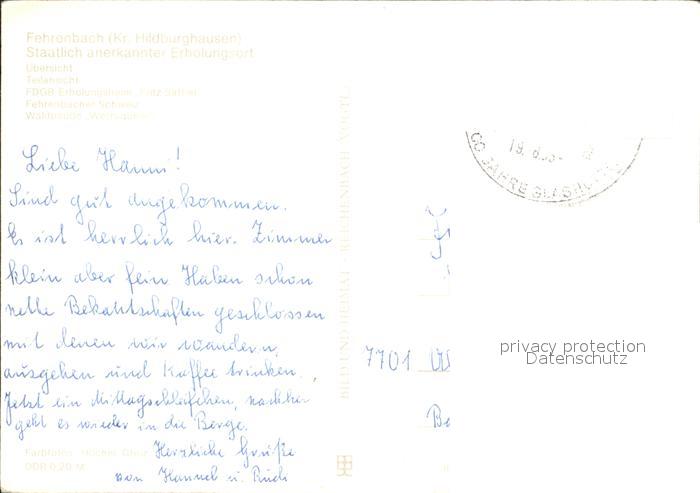 Fehrenbach (Kr. Hildburghausen)
Staatlich anerkannter Erholungsort
Übersicht
Teilansicht
FDGB-Erholungsheim „Fritz Sattler"
Fehrenbacher Schweiz
Waldbaude „Werraquelle"
Liebe Hanni!
Sind gut angekommen.
Es ist herrlich hier. Zimmer
klein aber fein. Haben schon
nette Bekantschaften geschlossen
mit denen wir wandern,
ausgehen und Kaffee trinken.
Jetzt ein Mittagschläfchen, nachher
geht es wieder in die Berge.
Herzliche Grüße
von Hannel u. Rudi
Farbfotos: Hüchel
DDR 0,20 M
BILD UND HEIMAT · REICHENBACH (VOGTL)
19. 8.
JAHRE
7701
privacy protection
Datenschutz